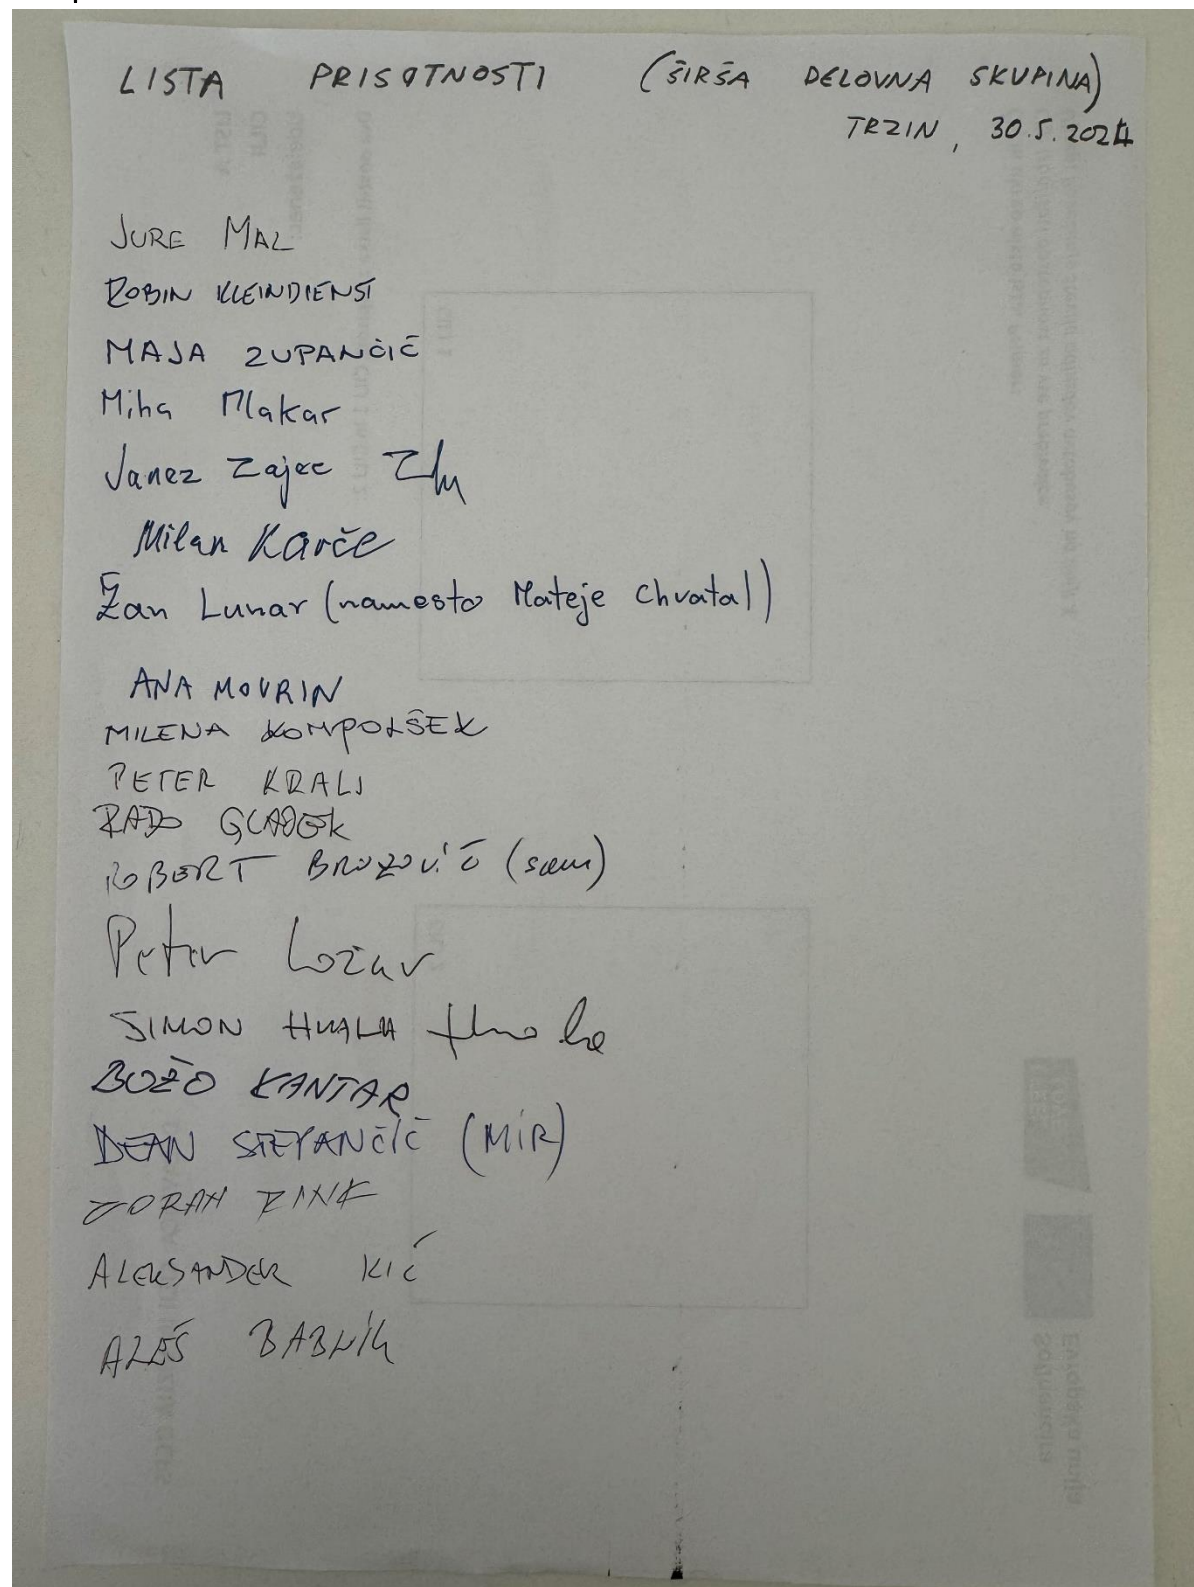 LISTA PRISOTNOSTI (ŠIRŠA DELOVNA SKUPINA)
TRZIN, 30.5.2024
JURE MAL
ROBIN KLEINDIENST
MAJA ZUPANČIČ
Miha Mlakar
Janez Zajec
Milan Karče
Žan Lunar (namesto Mateje Chvatal)
ANA MOVRIN
MILENA KOMPOLŠEK
PETER KRALJ
RADO GLADEK
ROBERT BROZOVIČ (sam)
Peter Ložar
SIMON HVALA
BOŽO KANTAR
DEAN STEPANČIČ (MIR)
ZORAN RINK
ALEKSANDER KIČ
ALEŠ BABNIK